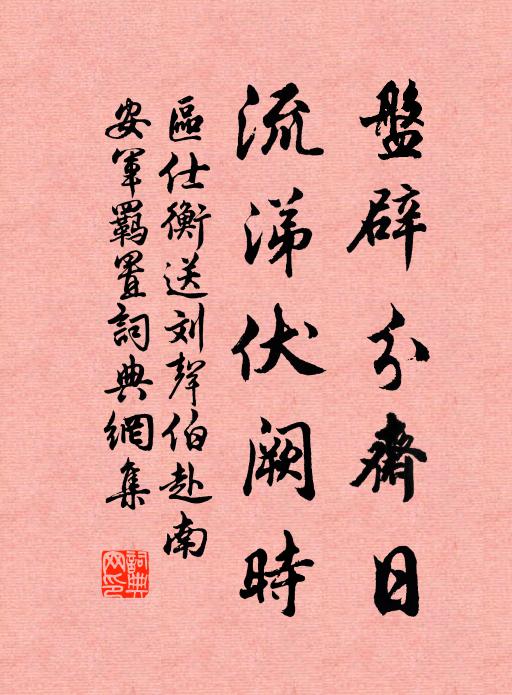 盤辟分齋日
流涕伏闕時
區仕衡送刘聲伯赴南
安軍羈置詞典網集
詞典
网印